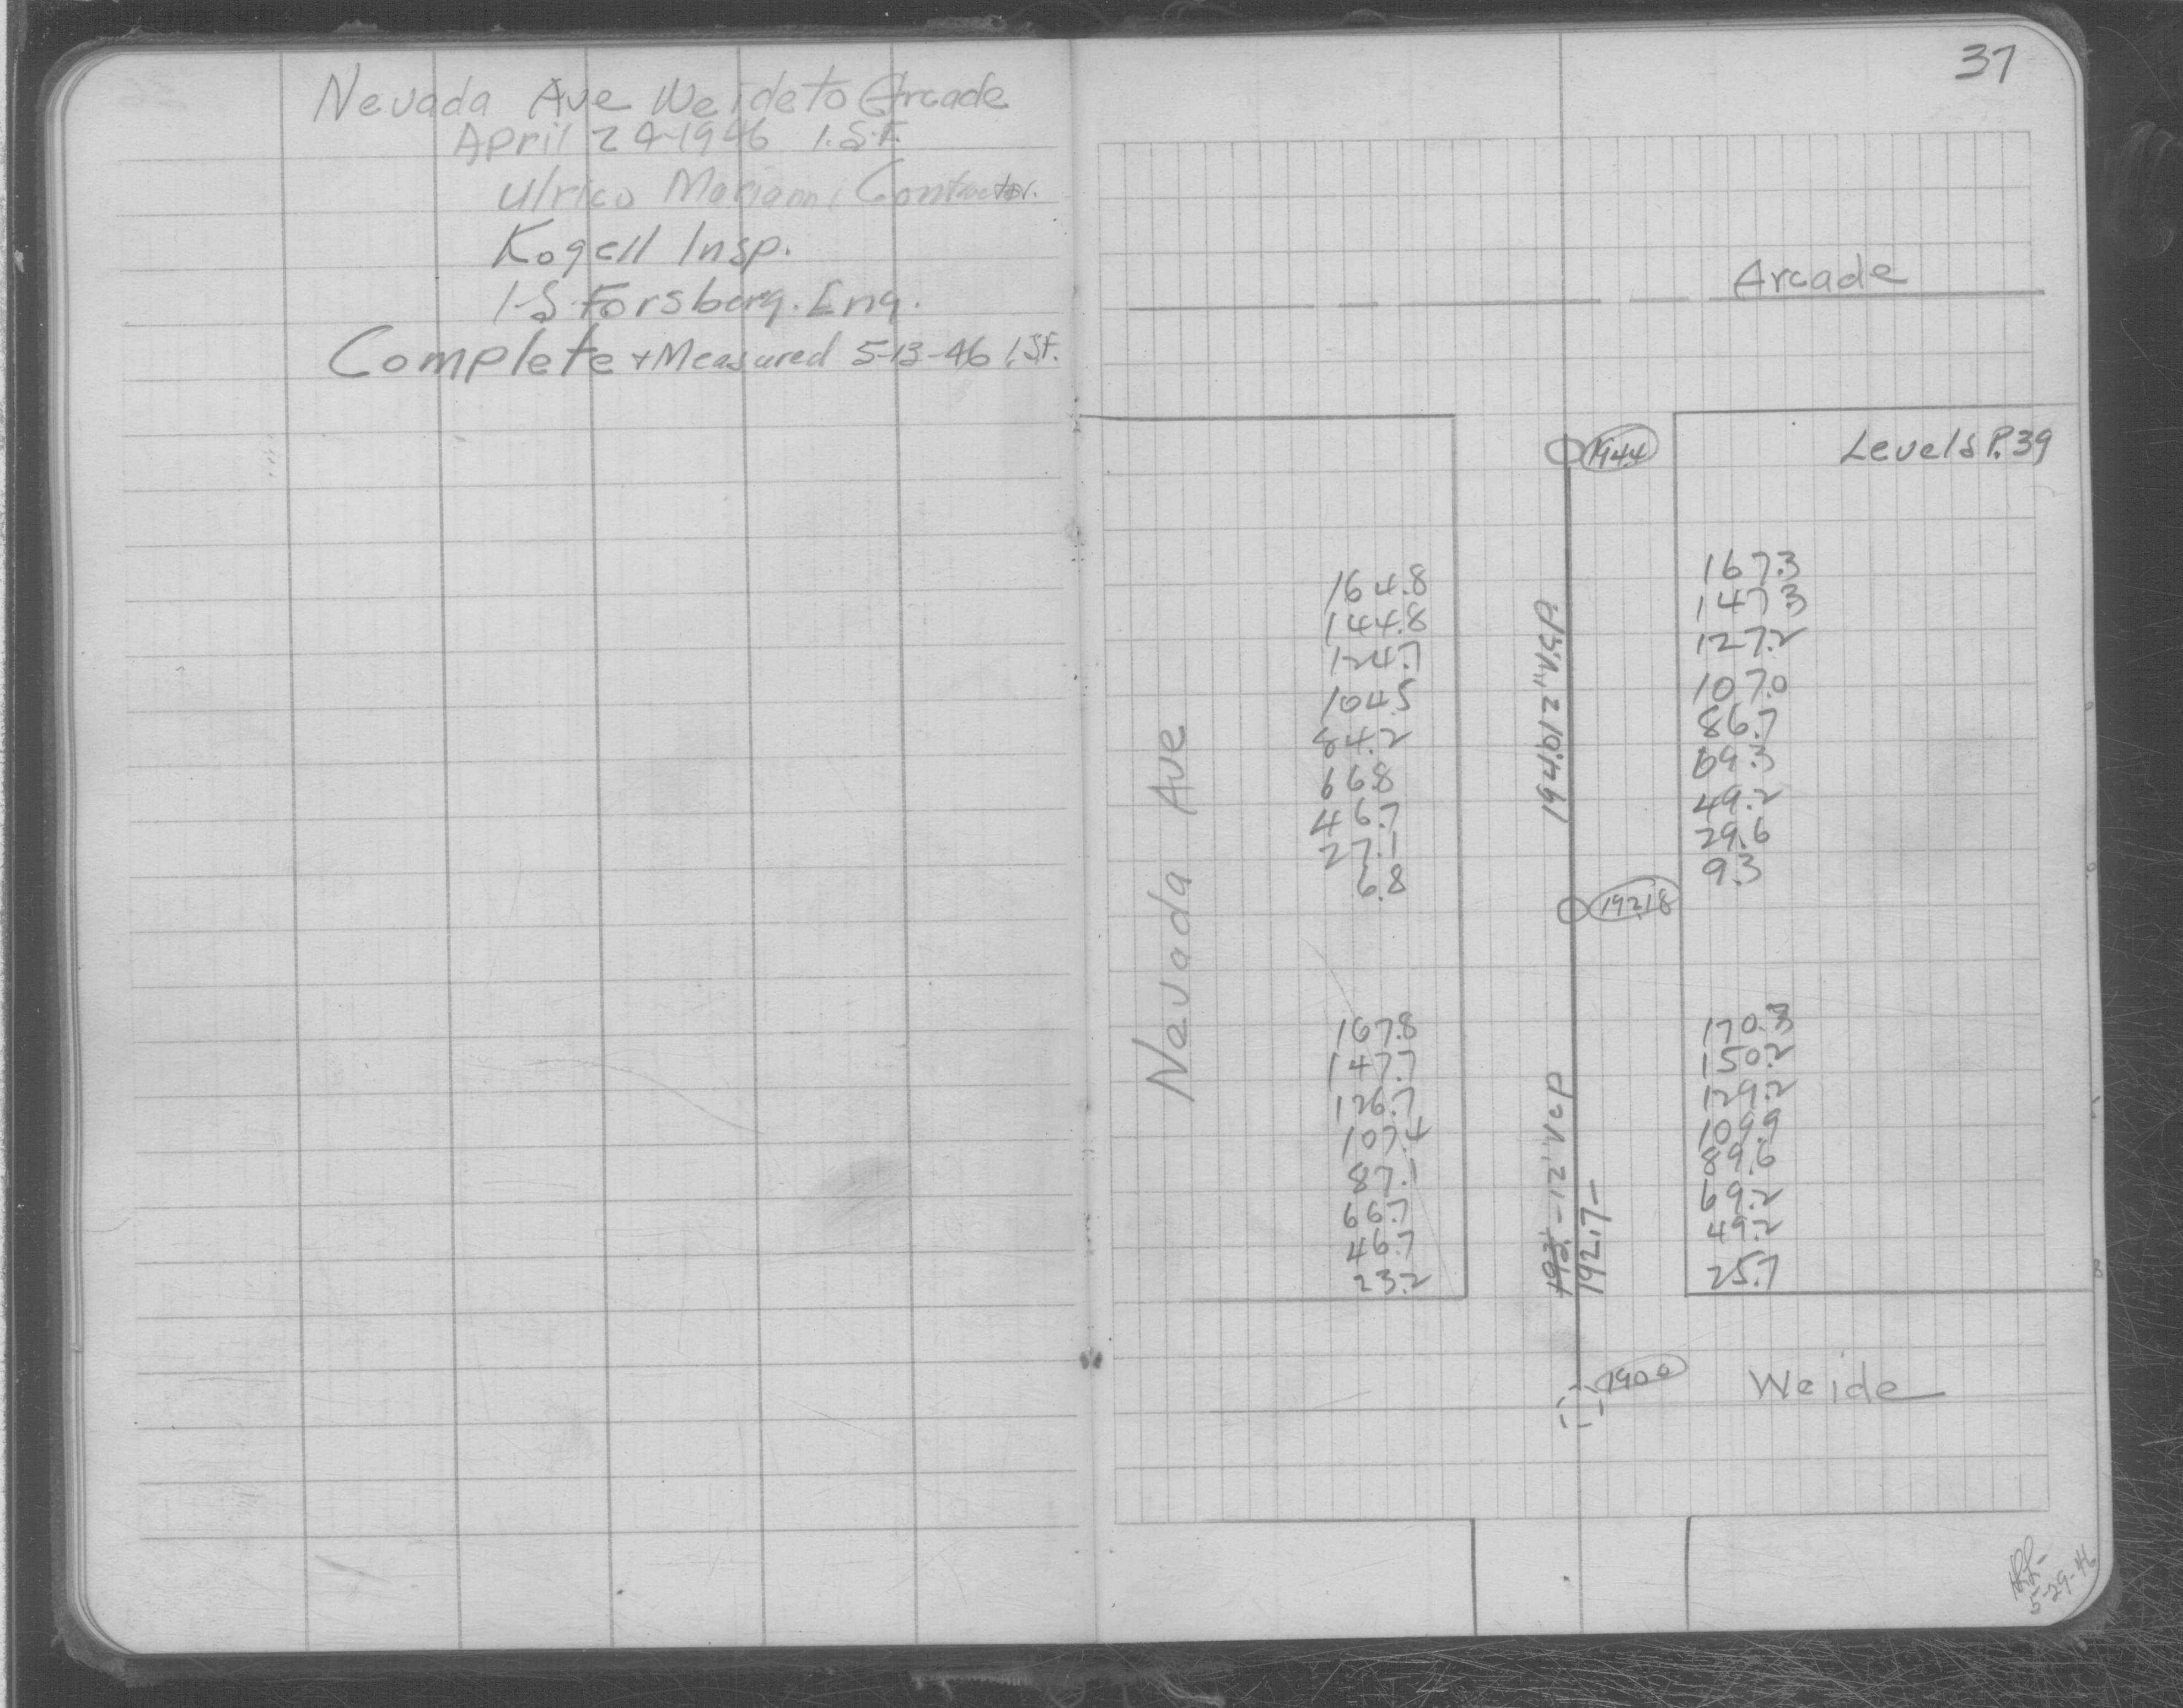 Nevada Ave Weide to Arcade
April 24-1946 I.S.F.
Ulrico Marianni Contractor.
Kogell Insp.
I-S-Forsberg. Eng.
Complete + Measured 5-13-46 I.S.F.
37
Arcade
Levels P.39
1944
164.8
144.8
124.7
104.5
84.2
66.8
46.7
27.1
6.8
167.3
147.3
127.2
107.0
86.7
69.3
49.2
29.6
9.3
Nevada Ave
1921.8
167.8
147.7
126.7
107.4
87.1
66.7
46.7
23.2
12" V.C.P
192.7-
170.3
150.2
129.2
109.9
89.6
69.2
49.2
25.7
1900
Weide
5-29-46